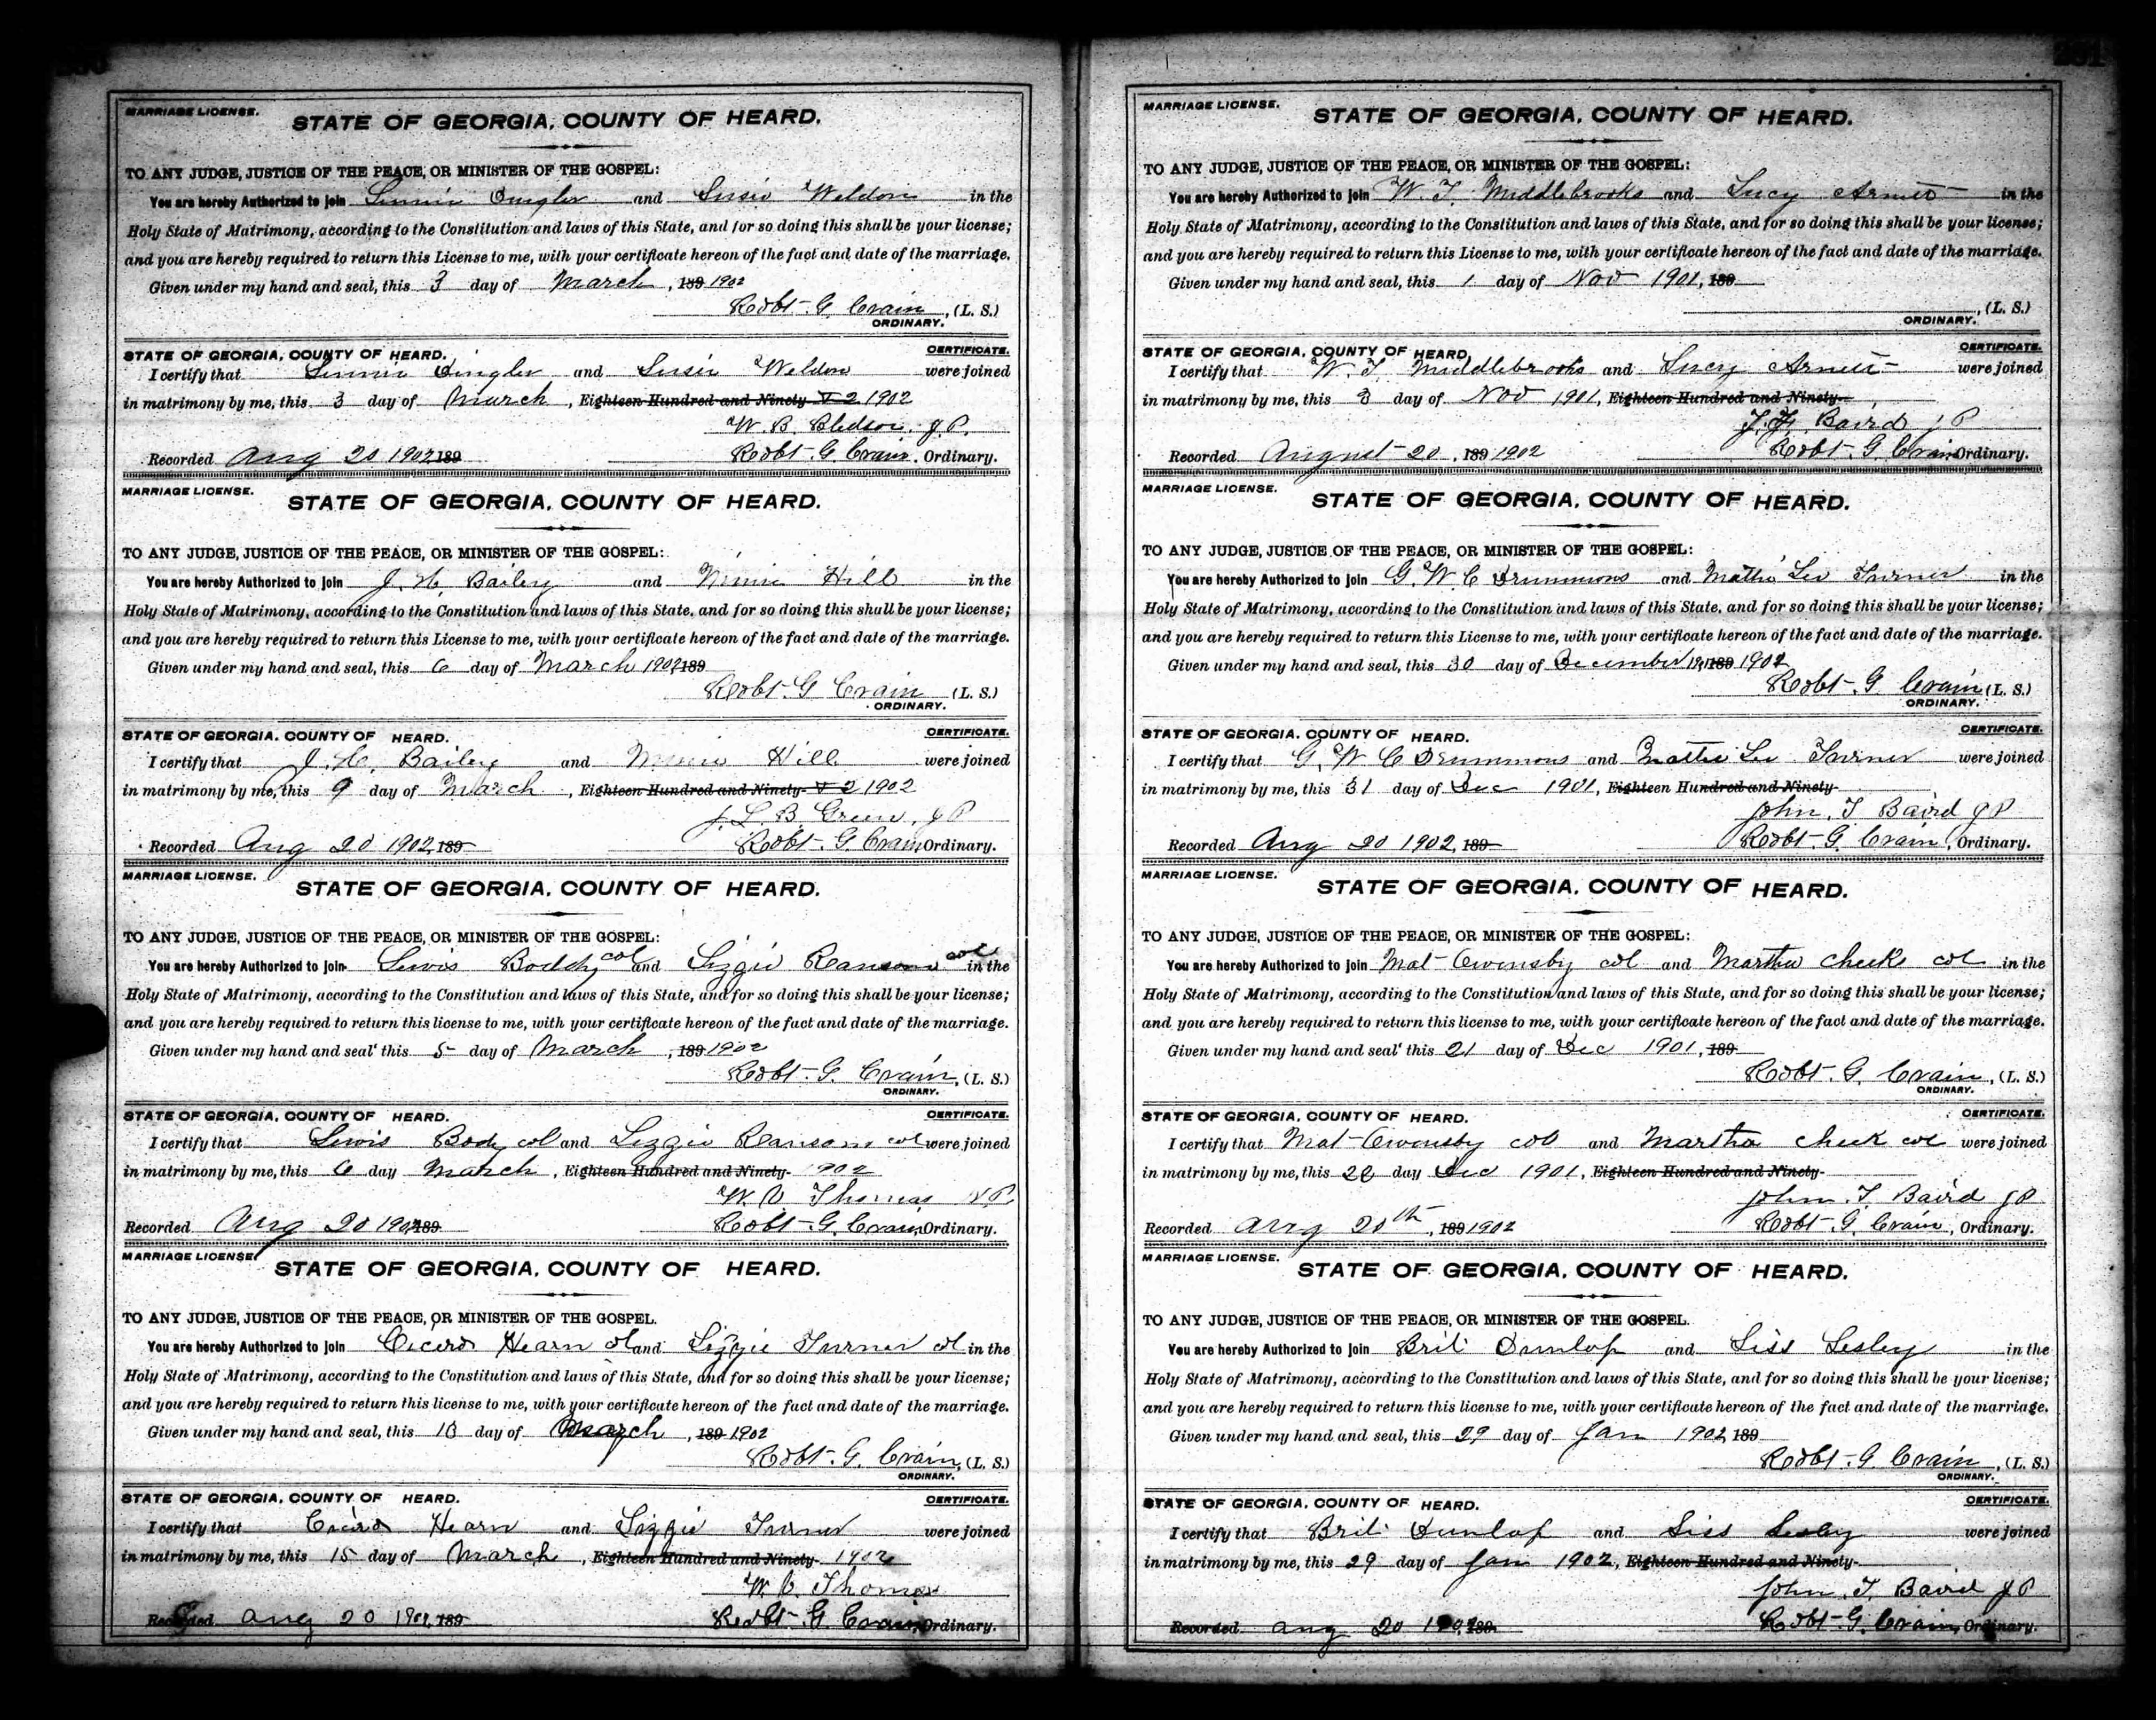 MARRIAGE LICENSE.
STATE OF GEORGIA, COUNTY OF HEARD.
TO ANY JUDGE, JUSTICE OF THE PEACE, OR MINISTER OF THE GOSPEL:
You are hereby Authorized to join and Susie Weldon in the
Holy State of Matrimony, according to the Constitution and laws of this State, and for so doing this shall be your license;
and you are hereby required to return this License to me, with your certificate hereon of the fact and date of the marriage.
Given under my hand and seal, this 3 day of March, 189 1902
Robt. G. Crain, (L. S.)
ORDINARY.
STATE OF GEORGIA, COUNTY OF HEARD. CERTIFICATE.
I certify that and Susie Weldon were joined
in matrimony by me, this 3 day of March, Eighteen Hundred and Ninety V 2 1902
W. B. Bledsoe, J.P.
Recorded Aug 20 1902, 189 Robt. G. Crain, Ordinary.
MARRIAGE LICENSE.
STATE OF GEORGIA, COUNTY OF HEARD.
TO ANY JUDGE, JUSTICE OF THE PEACE, OR MINISTER OF THE GOSPEL:
You are hereby Authorized to join J. H. Bailey and Minnie Hill in the
Holy State of Matrimony, according to the Constitution and laws of this State, and for so doing this shall be your license;
and you are hereby required to return this License to me, with your certificate hereon of the fact and date of the marriage.
Given under my hand and seal, this 6 day of March 1902, 189
Robt. G Crain (L. S.)
ORDINARY.
STATE OF GEORGIA, COUNTY OF HEARD. CERTIFICATE.
I certify that J. H. Bailey and Minnie Hill were joined
in matrimony by me, this 9 day of March, Eighteen Hundred and Ninety V 2 1902
J. L. B. Green, J P
Recorded Aug 20 1902, 189 Robt. G Crain Ordinary.
MARRIAGE LICENSE.
STATE OF GEORGIA, COUNTY OF HEARD.
TO ANY JUDGE, JUSTICE OF THE PEACE, OR MINISTER OF THE GOSPEL:
You are hereby Authorized to join Lewis Boddy col and Lizzie Ransom col in the
Holy State of Matrimony, according to the Constitution and laws of this State, and for so doing this shall be your license;
and you are hereby required to return this license to me, with your certificate hereon of the fact and date of the marriage.
Given under my hand and seal this 5 day of March, 189 1902
Robt. G. Crain, (L. S.)
ORDINARY.
STATE OF GEORGIA, COUNTY OF HEARD. CERTIFICATE.
I certify that Lewis Body col and Lizzie Ransom col were joined
in matrimony by me, this 6 day March, Eighteen Hundred and Ninety 1902
W. V Thomas N.P.
Recorded Aug 20 1902, 189 Robt. G. Crain, Ordinary.
MARRIAGE LICENSE
STATE OF GEORGIA, COUNTY OF HEARD.
TO ANY JUDGE, JUSTICE OF THE PEACE, OR MINISTER OF THE GOSPEL.
You are hereby Authorized to join Cicero Hearn col and Lizzie Turner col in the
Holy State of Matrimony, according to the Constitution and laws of this State, and for so doing this shall be your license;
and you are hereby required to return this license to me, with your certificate hereon of the fact and date of the marriage.
Given under my hand and seal, this 13 day of March, 189 1902
Robt. G. Crain, (L. S.)
ORDINARY.
STATE OF GEORGIA, COUNTY OF HEARD. CERTIFICATE.
I certify that Cicero Hearn and Lizzie Turner were joined
in matrimony by me, this 15 day of March, Eighteen Hundred and Ninety 1902
W. V. Thomas
Recorded Aug 20 1902, 189 Robt. G Crain, Ordinary.
MARRIAGE LICENSE.
STATE OF GEORGIA, COUNTY OF HEARD.
TO ANY JUDGE, JUSTICE OF THE PEACE, OR MINISTER OF THE GOSPEL:
You are hereby Authorized to join W. T. Middlebrooks and Lucy Arnett in the
Holy State of Matrimony, according to the Constitution and laws of this State, and for so doing this shall be your license;
and you are hereby required to return this License to me, with your certificate hereon of the fact and date of the marriage.
Given under my hand and seal, this 1 day of Nov 1901, 189
, (L. S.)
ORDINARY.
STATE OF GEORGIA, COUNTY OF HEARD. CERTIFICATE.
I certify that W. T Middlebrooks and Lucy Arnett were joined
in matrimony by me, this 3 day of Nov 1901, Eighteen Hundred and Ninety
Baird J P
Recorded August 20, 189 1902 Robt. G. Crain Ordinary.
MARRIAGE LICENSE.
STATE OF GEORGIA, COUNTY OF HEARD.
TO ANY JUDGE, JUSTICE OF THE PEACE, OR MINISTER OF THE GOSPEL:
You are hereby Authorized to join G. W C Drummons and Mattie Lee Turner in the
Holy State of Matrimony, according to the Constitution and laws of this State, and for so doing this shall be your license;
and you are hereby required to return this License to me, with your certificate hereon of the fact and date of the marriage.
Given under my hand and seal, this 30 day of December 189
Robt. G. Crain (L. S.)
ORDINARY.
STATE OF GEORGIA, COUNTY OF HEARD. CERTIFICATE.
I certify that G. W C Drummons and Mattie Lee Turner were joined
in matrimony by me, this 31 day of Dec 1901, Eighteen Hundred and Ninety
John. T Baird J P
Recorded Aug 20 1902, 189 Robt. G. Crain, Ordinary.
MARRIAGE LICENSE.
STATE OF GEORGIA, COUNTY OF HEARD.
TO ANY JUDGE, JUSTICE OF THE PEACE, OR MINISTER OF THE GOSPEL:
You are hereby Authorized to join Mat Owensby col and Martha Cheeks col in the
Holy State of Matrimony, according to the Constitution and laws of this State, and for so doing this shall be your license;
and you are hereby required to return this license to me, with your certificate hereon of the fact and date of the marriage.
Given under my hand and seal this 21 day of Dec 1901, 189
Robt. G. Crain, (L. S.)
ORDINARY.
STATE OF GEORGIA, COUNTY OF HEARD. CERTIFICATE.
I certify that Mat Owensby col and Martha Cheek col were joined
in matrimony by me, this day Dec 1901, Eighteen Hundred and Ninety
John. T. Baird J P.
Recorded Aug 20th, 189 1902 Robt. G. Crain, Ordinary.
MARRIAGE LICENSE.
STATE OF GEORGIA, COUNTY OF HEARD.
TO ANY JUDGE, JUSTICE OF THE PEACE, OR MINISTER OF THE GOSPEL.
You are hereby Authorized to join Brit Dunlap and Siss Lesley in the
Holy State of Matrimony, according to the Constitution and laws of this State, and for so doing this shall be your license;
and you are hereby required to return this license to me, with your certificate hereon of the fact and date of the marriage.
Given under my hand and seal, this 29 day of Jan 1902, 189
Robt. G Crain, (L. S.)
ORDINARY.
STATE OF GEORGIA, COUNTY OF HEARD. CERTIFICATE.
I certify that Brit Dunlap and Siss Lesley were joined
in matrimony by me, this 29 day of Jan 1902, Eighteen Hundred and Ninety
John. T. Baird J P
Recorded Aug 20 1902, 189 Robt. G. Crain, Ordinary.